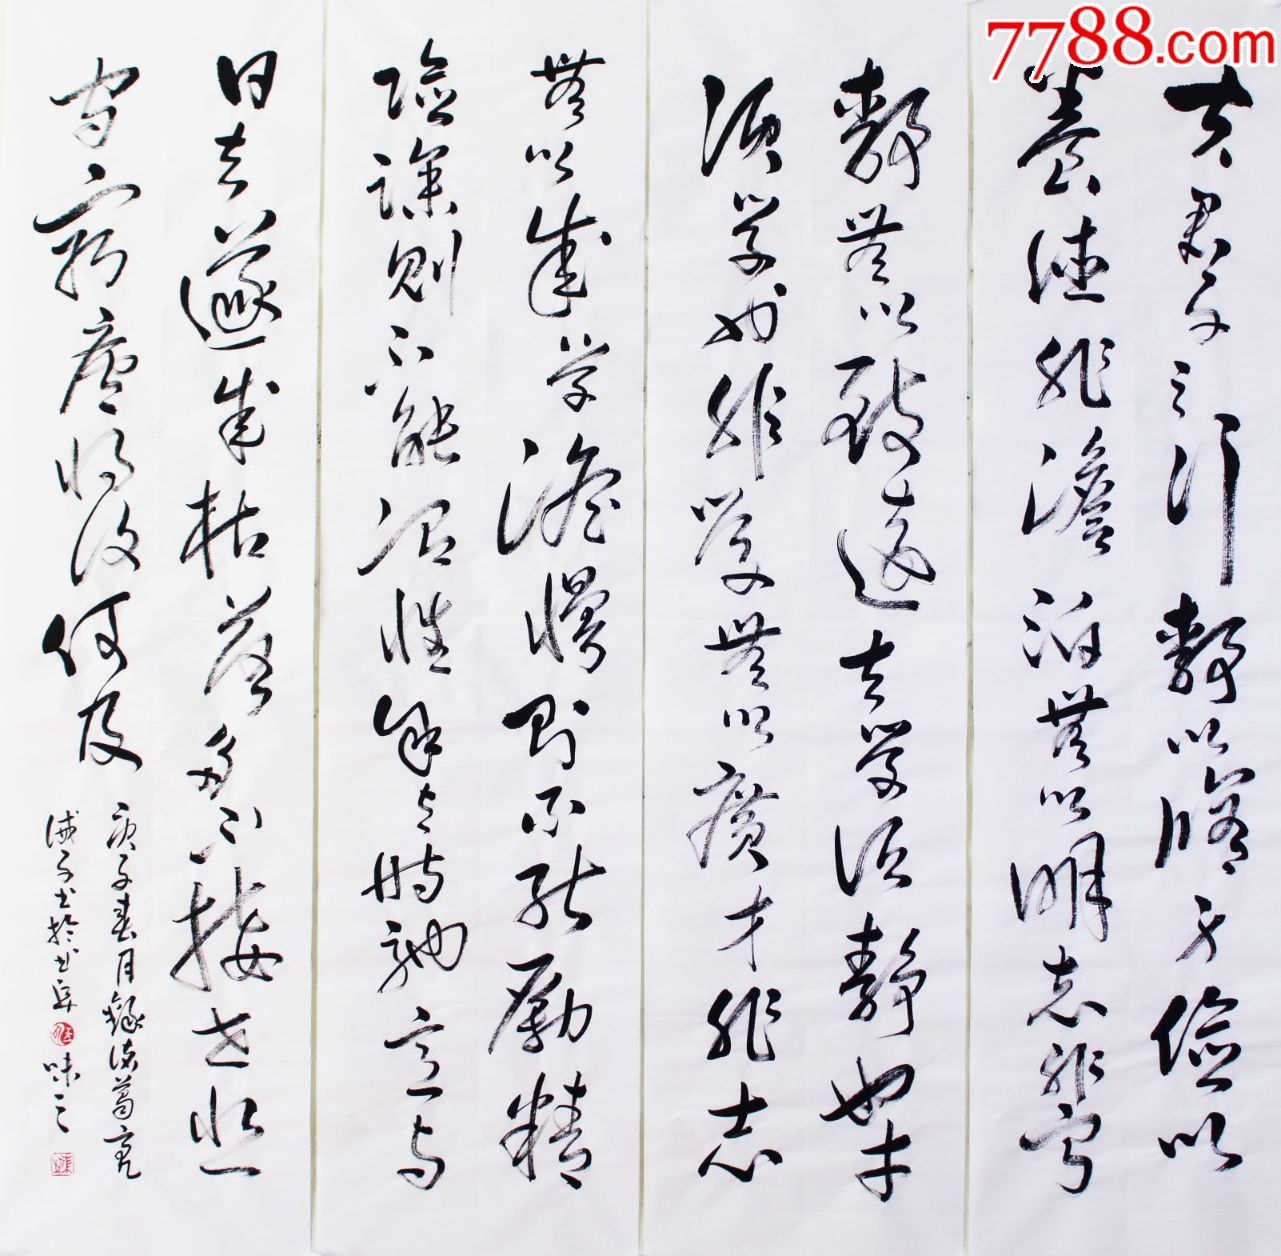 7788.com
夫君子之行静以修身俭以
养德非澹泊无以明志非宁
静无以致远夫学须静也才
须学也非学无以广才非志
无以成学滛慢则不能励精
险躁则不能冶性年与时驰意与
日去遂成枯落多不接世悲
守穷庐将复何及
庚子春月录诸葛亮
诫子书于书屋 味之